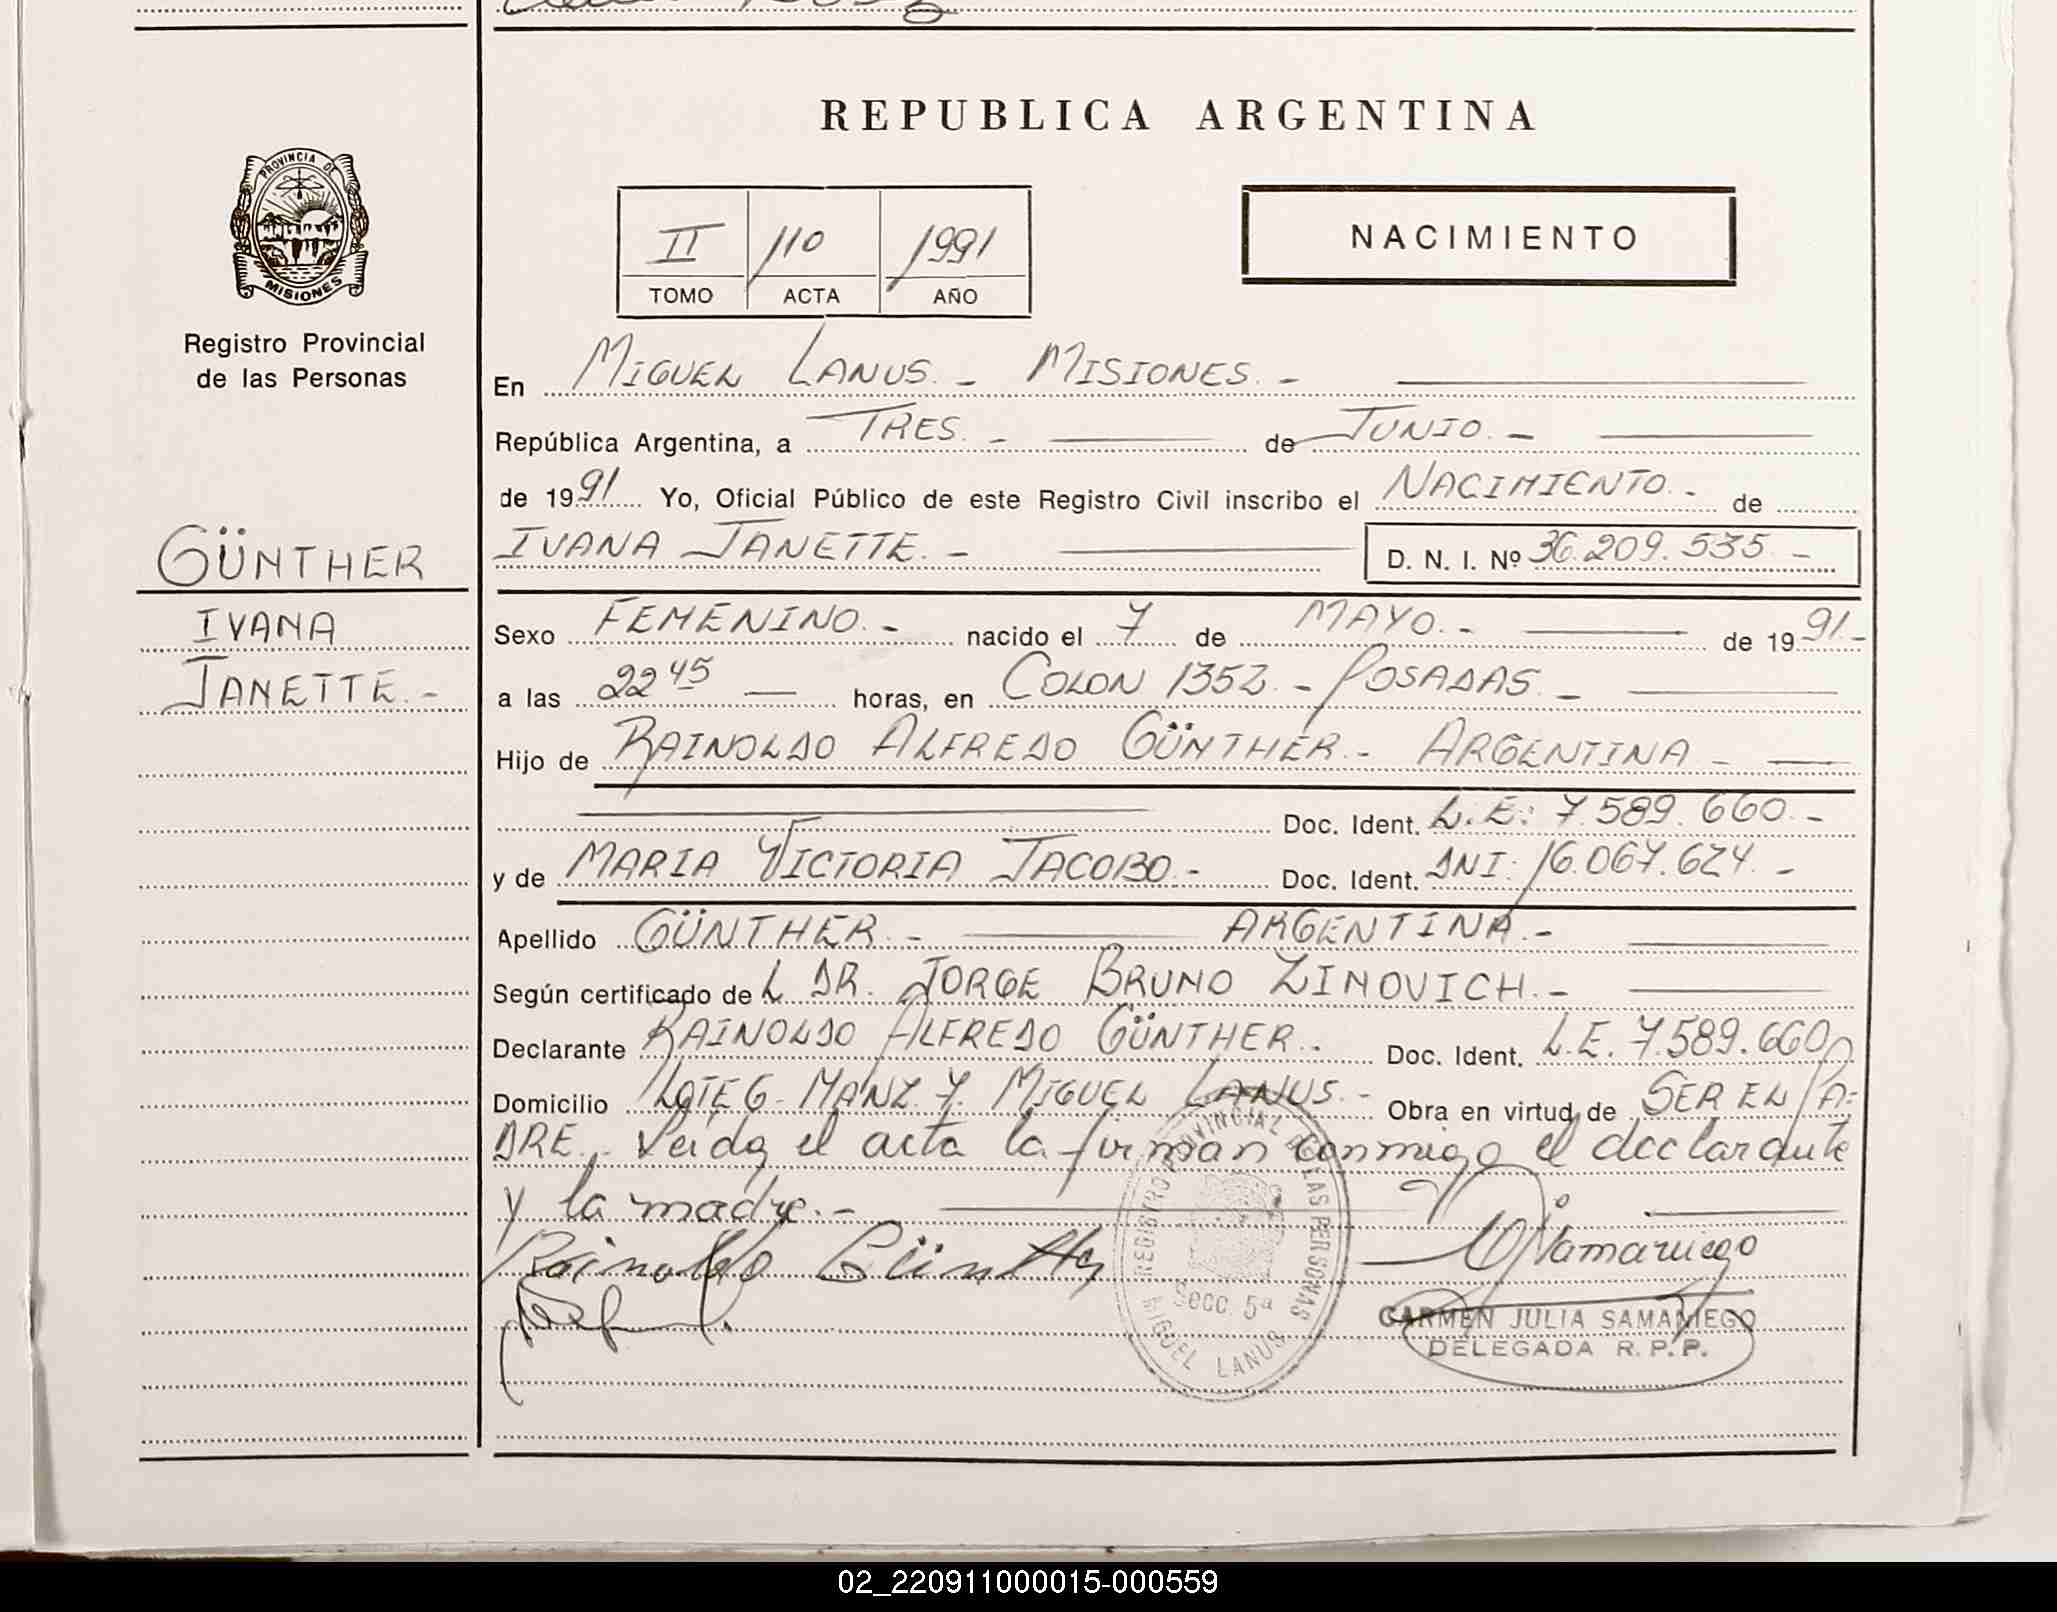 REPUBLICA ARGENTINA
PROVINCIA DE
MISIONES
Registro Provincial
de las Personas
II 110 1991
TOMO ACTA AÑO
NACIMIENTO
En MIGUEL LANUS.- MISIONES.-
República Argentina, a TRES.- de JUNIO.-
de 1991 Yo, Oficial Público de este Registro Civil inscribo el NACIMIENTO.- de
IVANA JANETTE.- D. N. I. Nº 36.209.535.-
GÜNTHER
IVANA
JANETTE.-
Sexo FEMENINO.- nacido el 7 de MAYO.- de 1991.-
a las 22 45 horas, en COLON 1352.- POSADAS.-
Hijo de RAINOLDO ALFREDO GÜNTHER.- ARGENTINA.-
Doc. Ident. L.E: 7.589.660.-
y de MARIA VICTORIA JACOBO.- Doc. Ident. DNI: 16.067.624.-
Apellido GÜNTHER.- ARGENTINA.-
Según certificado de L DR. JORGE BRUNO ZINOVICH.-
Declarante RAINOLDO ALFREDO GÜNTHER.- Doc. Ident. L.E. 7.589.660
Domicilio LOTE 6- MANZ. 7. MIGUEL LANUS.- Obra en virtud de SER EL PA-
DRE.- Leida el acta la firman conmigo el declarante
y la madre.-
Rainoldo Günther
Samaniego
REGISTRO PROVINCIAL DE LAS PERSONAS
Secc. 5ª
MIGUEL LANUS
CARMEN JULIA SAMANIEGO
DELEGADA R.P.P.
02_220911000015-000559